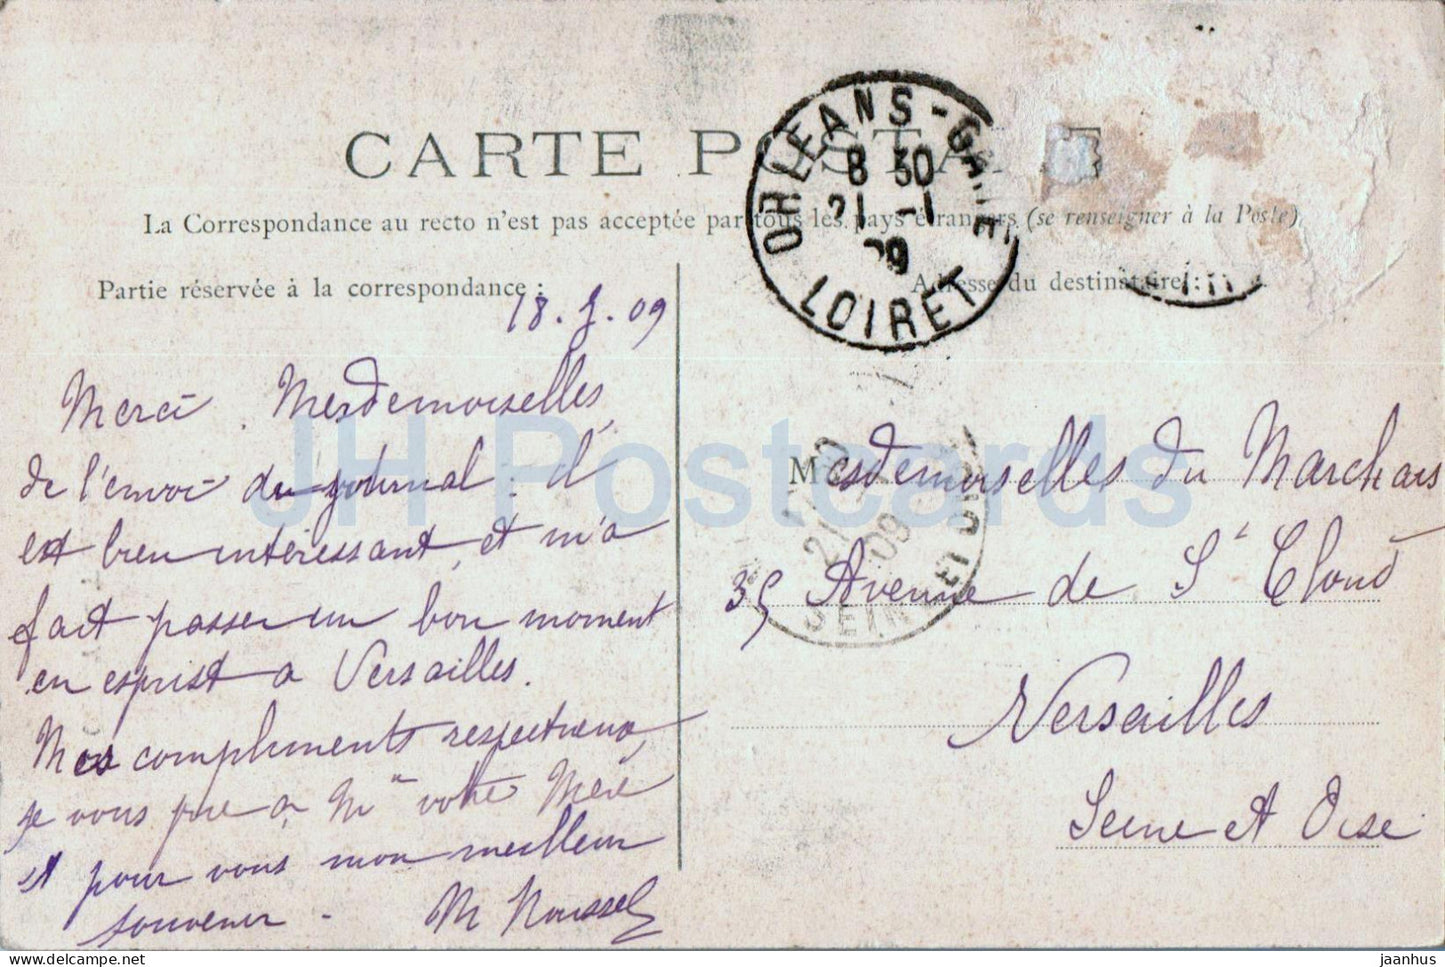 CARTE POSTALE
La Correspondance au recto n'est pas acceptée par tous les pays étrangers (se renseigner à la Poste)
ORLEANS-GARE
8 30
21 -1
09
LOIRET
Partie réservée à la correspondance :
18.1.09
Merci Mesdemoiselles,
de l'envoi du journal : il
est bien intéressant, et m'a
fait passer un bon moment
en esprit à Versailles.
Mes compliments respectueux,
je vous prie à Me votre Mère
et pour vous mon meilleur
souvenir.
M Roussel
Adresse du destinataire :
Mesdemoiselles du Marchais
35 Avenue de St Cloud
Versailles
Seine et Oise
21
09
SEINE ET OISE
JH Postcards
jaanhus